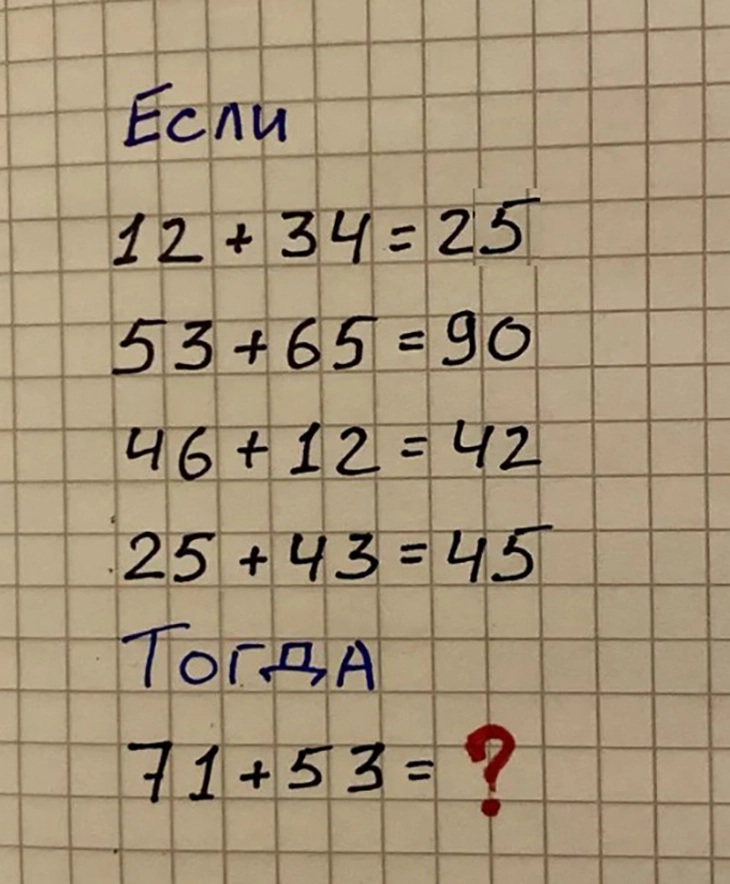 Если
12 + 34 = 25
53 + 65 = 90
46 + 12 = 42
25 + 43 = 45
Тогда
71 + 53 = ?